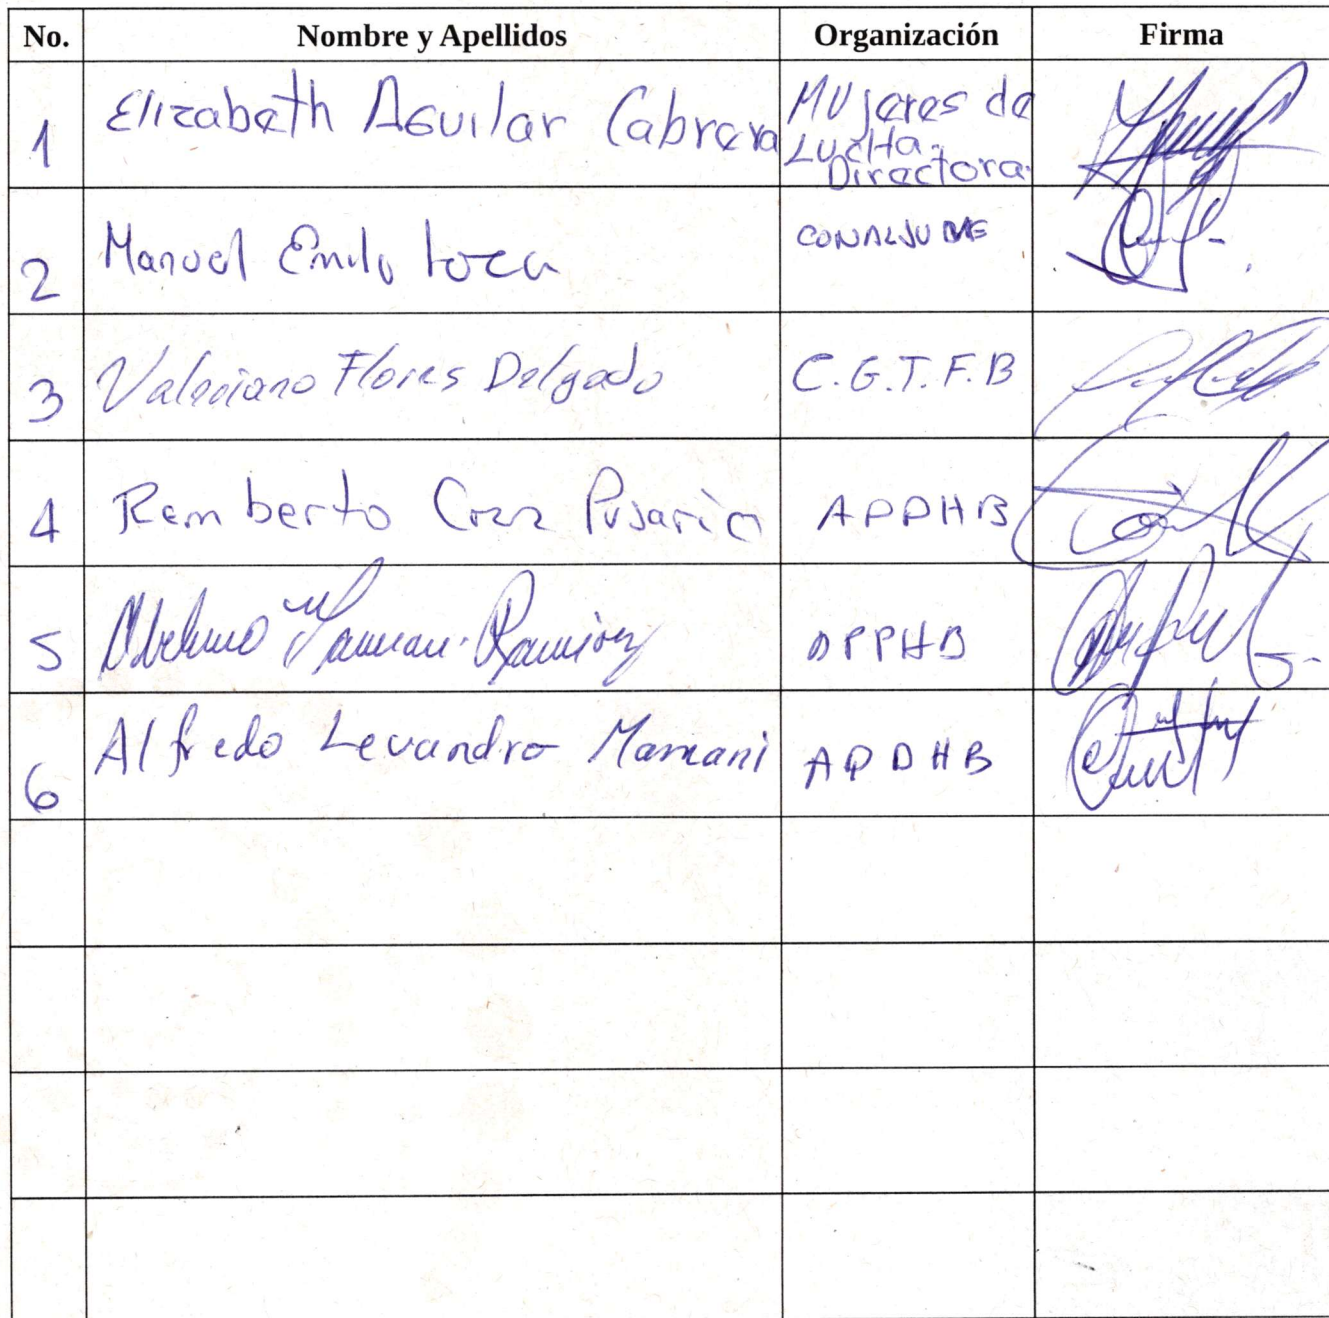 No. Nombre y Apellidos Organización Firma
1 Elizabeth Aguilar Cabrera Mujeres de
Lucha.
Directora.
2 Manuel Emilo CONALJUVE
3 Valeriano Flores Delgado C.G.T.F.B
4 Remberto Cruz Pusarico APDHB
5 Mamani Ramirez APDHB
6 Alfredo Levandro Mamani APDHB